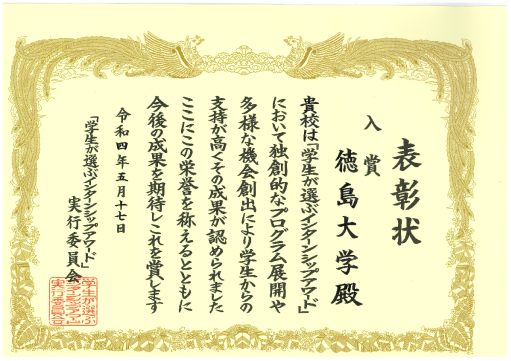 表彰状
入賞
徳島大学殿
貴校は「学生が選ぶインターンシップアワード」
において独創的なプログラム展開や
多様な機会創出により学生からの
支持が高くその成果が認められました
ここにこの栄誉を称えるとともに
今後の成果を期待しこれを賞します
令和四年五月十七日
「学生が選ぶインターンシップアワード」
実行委員会